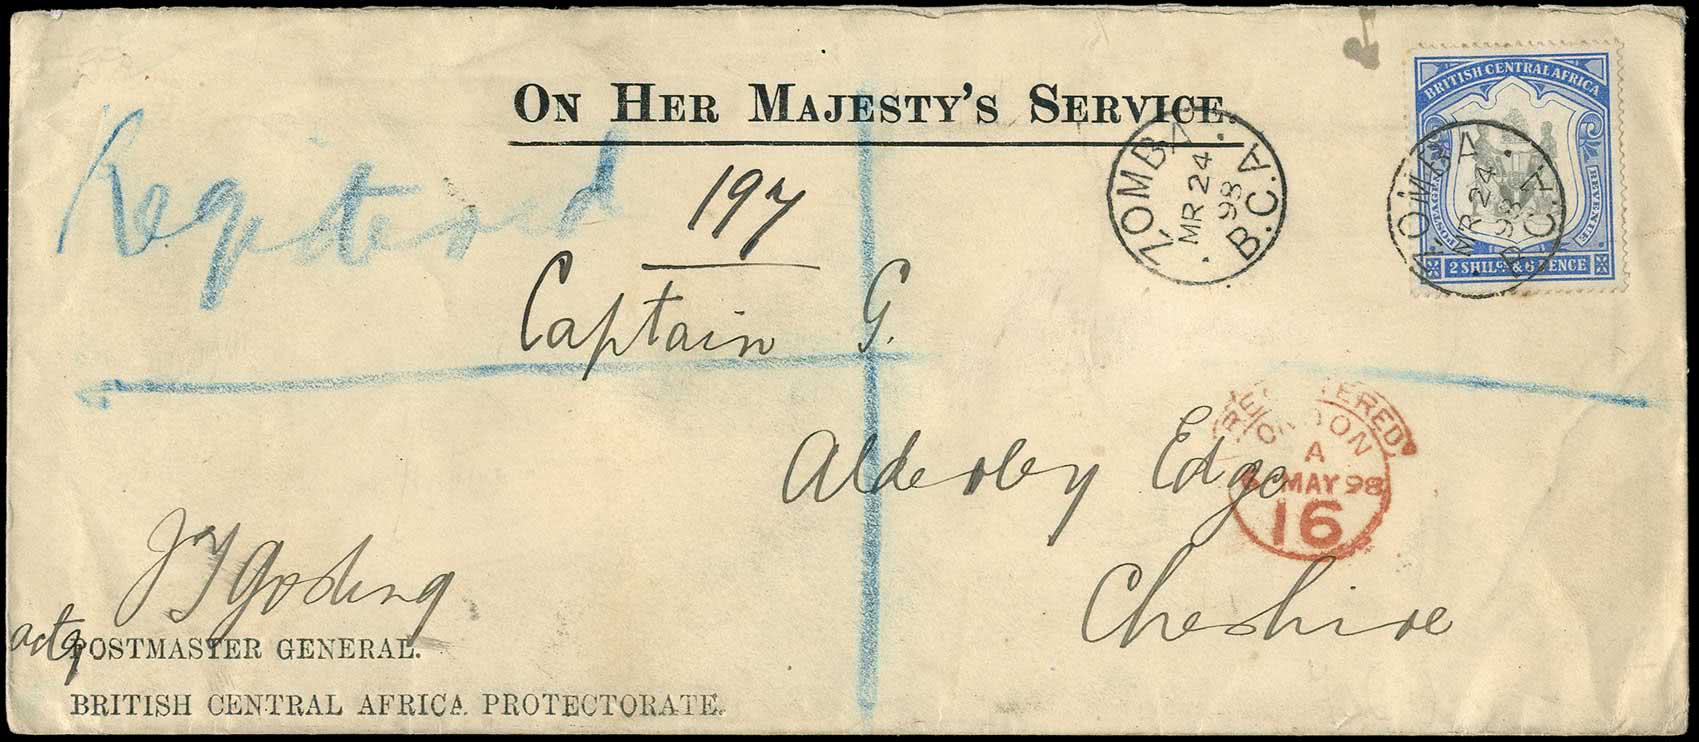 ON HER MAJESTY'S SERVICE.
Registered
197
Captain G.
Alderley Edge
Cheshire
J T Gosling
actg POSTMASTER GENERAL.
BRITISH CENTRAL AFRICA PROTECTORATE.
ZOMBA
MR 24
98
B.C.A.
BRITISH CENTRAL AFRICA
POSTAGE
REVENUE
2 SHILGS & 6 PENCE
ZOMBA
MR 24
98
B.C.A.
REGISTERED
LONDON
A
MAY 98
16